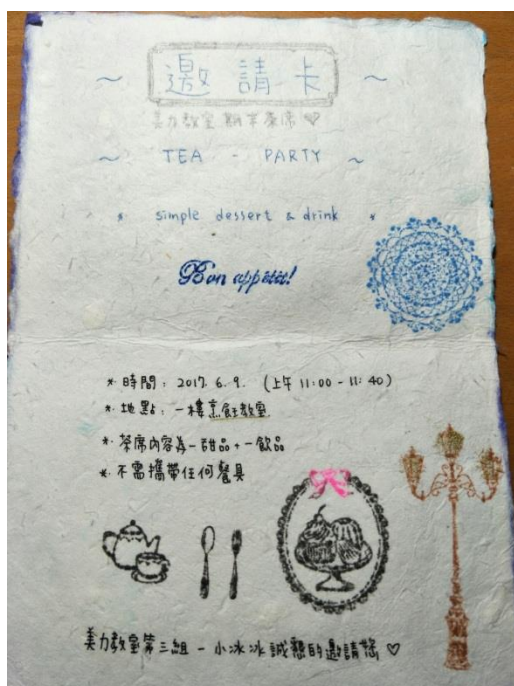 ~ 邀請卡 ~
美力教室 期末茶席 ♡
~ TEA - PARTY ~
* simple dessert & drink *
Bon appétit!
* 時間：2017. 6. 9. (上午 11:00 - 11:40)
* 地點：一樓烹飪教室
* 茶席內容為一甜品+一飲品
* 不需攜帶任何餐具
美力教室第三組 - 小冰冰誠懇的邀請您 ♡